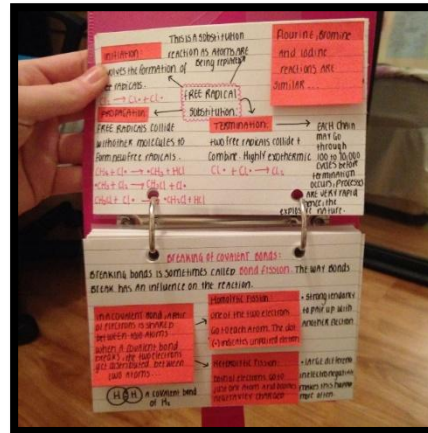 This is a substitution
reaction as atoms are
being replaced
Initiation:
involves the formation of
free radicals.
Flourine, Bromine
and iodine
reactions are
similar...
FREE RADICAL
Substitution:
Propagation:
FREE RADICALS COLLIDE
with other molecules to
form new free radicals.
CH₄ + Cl• → •CH₃ + HCl
•CH₃ + Cl₂ → CH₃Cl + Cl•
CH₃Cl + Cl• → •CH₂Cl + HCl
TERMINATION:
two free radicals collide +
combine. Highly exothermic
Cl• + Cl• → Cl₂
EACH CHAIN
MAY GO
through
100 to 10,000
cycles before
termination
occurs. Processes
are very rapid
hence, the
explosive nature.
Breaking of covalent Bonds:
Breaking bonds is sometimes called Bond fission. The way Bonds
Break has an influence on the reaction.
In a covalent bond, a pair
of electrons is shared
between two atoms.
When a covalent bond
breaks, the two electrons
get distributed between
two atoms.
Homolytic fission
one of the two electrons
Go to each atom. The dot
(•) indicates unpaired electron
+ strong tendancy
to pair up with
another electron
Heterolytic fission
just one atom and becomes
negatively charged
+ Large different
in electronegativity
makes this happen
more often.
H H
A covalent bond
of H₂